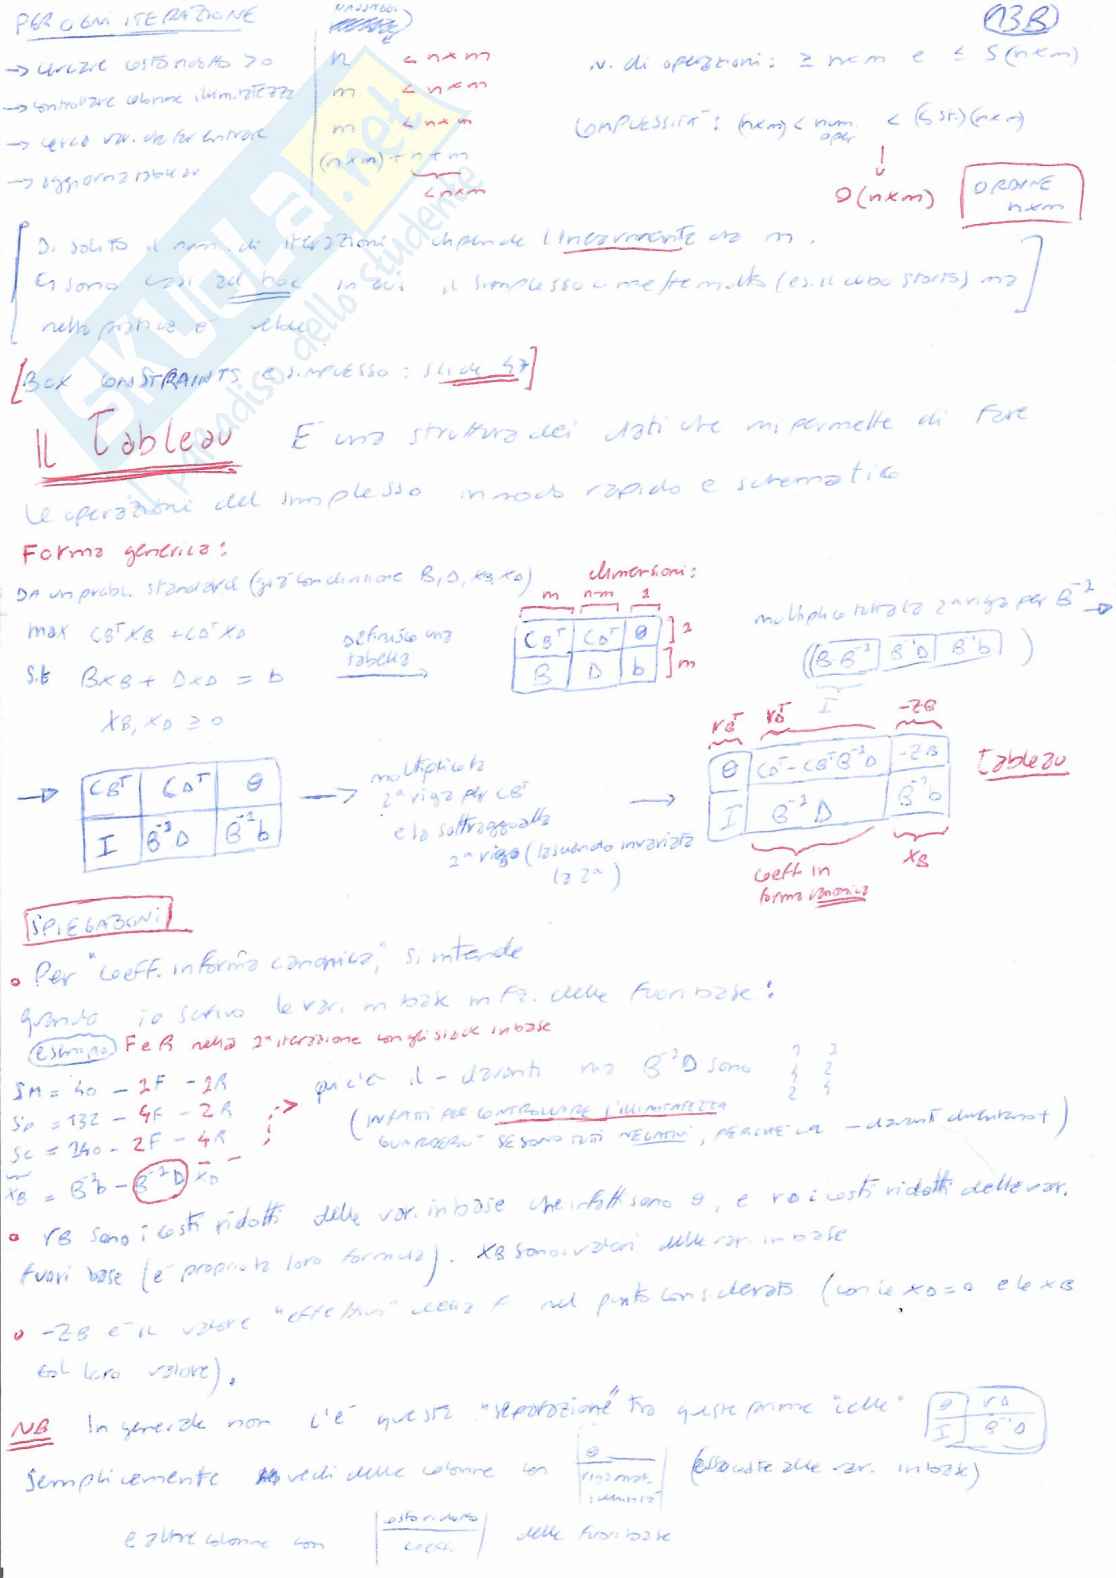 PER OGNI ITERAZIONE
PASSAGGI
13B
→ cercare costo ridotto > 0 n < n×m
→ controllare colonne illimitatezza m < n×m
→ cerco var. da far entrare m < n×m
→ aggiorna tableau (n×m) + n + m
< n×m
n. di operazioni: ≥ n×m e ≤ 5(n×m)
COMPLESSITÀ: (n×m) < num. oper < (n×m)
O(n×m)
ORDINE n×m
Di solito il num. di iterazioni dipende linearmente da m.
Ci sono casi ad hoc in cui il simplesso ci mette molto (es. il cubo storto) ma
nella pratica è
[BOX CONSTRAINTS e SIMPLESSO: slide 47]
IL Tableau È una struttura dei dati che mi permette di fare
le operazioni del simplesso in modo rapido e schematico
Forma generica:
DA un probl. standard (già con divisione B, D, xB, xD)
max CB^T XB + CD^T XD
s.t BxB + DxD = b
XB, XD ≥ 0
definisco una tabella
dimensioni:
m n-m 1
CB^T CD^T 0 ]1
B D b ]m
moltiplico tutta la 2a riga per B^-1 →
((B·B^-1 B^-1D B^-1b))
I
→ CB^T CD^T 0
I B^-1D B^-1b
→ moltiplico la
2ª riga per CB^T
e la sottraggo alla
riga (lasciando invariata
la 2ª)
→
rB^T rD^T -ZB
0 CD^T - CB^T B^-1 D -ZB
I B^-1 D B^-1 b
Tableau
coeff. in
forma canonica
XB
SPIEGAZIONI
• Per "coeff. in forma canonica", si intende
quando io scrivo le var. in base in fz. delle fuori base:
esempio F e R nella 1ª iterazione con gli slack in base
SM = 40 - 1F - 1R
SA = 132 - 4F - 2R
SC = 140 - 2F - 4R
XB = B^-1b - B^-1D XD
qui c'è il - davanti ma B^-1D sono
1 1
4 2
2 4
(INFATTI PER CONTROLLARE L'ILLIMITATEZZA
GUARDERÒ SE SONO TUTTI NEGATIVI, PERCHÉ COL - davanti diventano +)
• rB sono i costi ridotti delle var. in base che infatti sono 0, e rD i costi ridotti delle var.
fuori base (è proprio la loro formula). XB sono i valori delle var. in base
• -ZB è il valore "effettivo" della f nel punto considerato (con le XD=0 e le XB
col loro valore).
NB In generale non c'è questa "separazione" tra queste prime "celle"
0 rD
I B^-1D
Semplicemente vedi delle colonne con
0
riga mat.
identità
(associate alle var. in base)
e altre colonne con
costo ridotto
coeff.
delle fuori base
SKUOLA.net
il paradiso dello studente